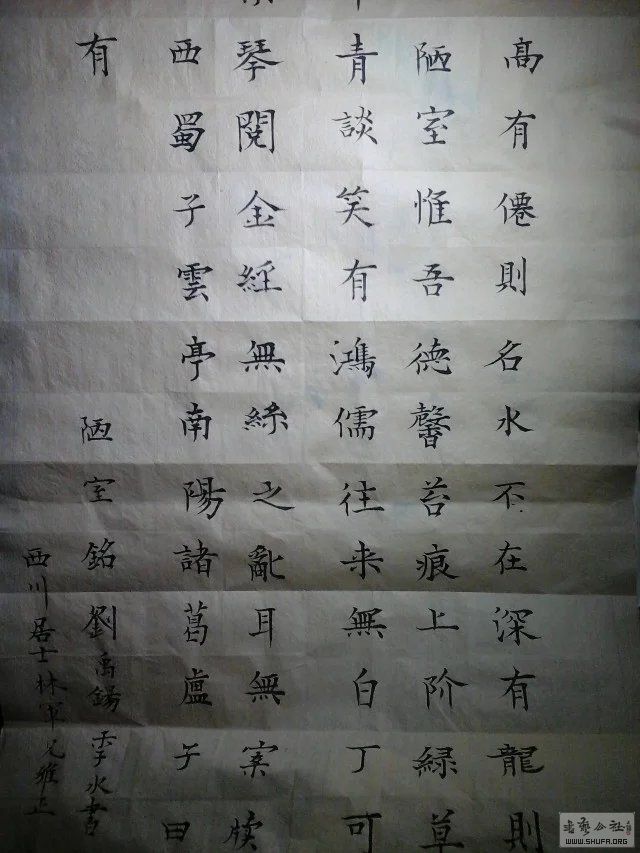 高有僊則名水不在深有龍則
陋室惟吾德馨苔痕上阶緑草
青談笑有鴻儒往来無白丁可
琴閱金經無絲之亂耳無案牘
西蜀子雲亭南陽諸葛盧子曰
有
陋室銘劉禹錫李水書
西川居士林軍兄雅正
書藝公社
WWW.SHUFA.ORG